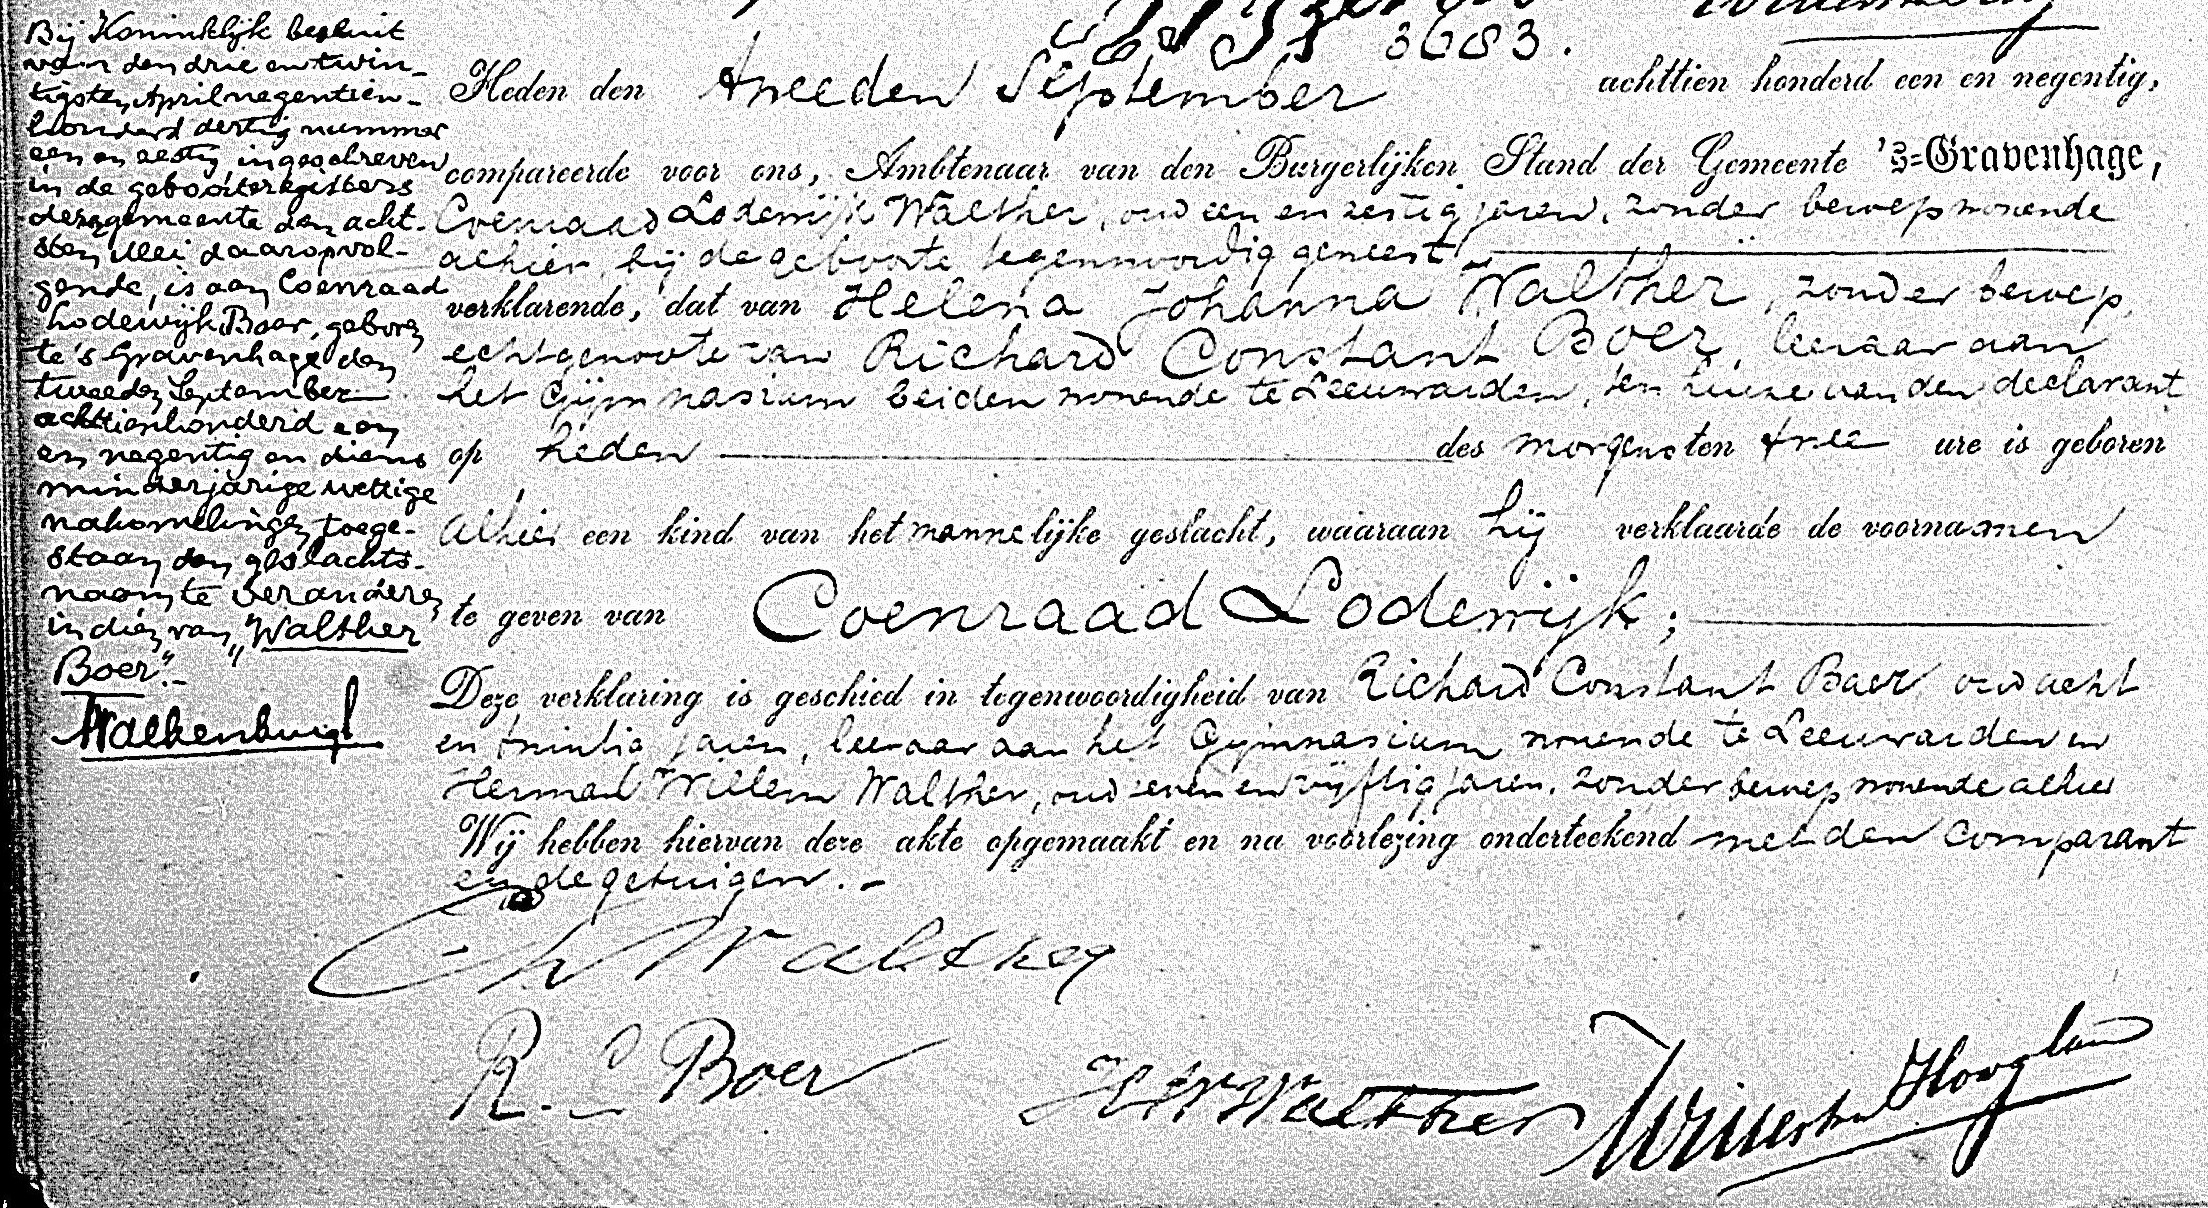 Bij Koninklijk besluit
van den drie en twin-
tigsten April negentien-
honderd dertig nummer
een en zestig ingeschreven
in de geboorteregisters
dezer gemeente den acht-
sten Mei daaropvol-
gende, is aan Coenraad
Lodewijk Boer, geboren
te 's Gravenhage den
tweeden September
achttienhonderd een
en negentig en diens
minderjarige wettige
nakomelingen toege-
staan den geslachts-
naam te veranderen
in dien van "Walther
Boer".-
3683.
Heden den tweeden September achttien honderd een en negentig,
compareerde voor ons, Ambtenaar van den Burgerlijken Stand der Gemeente 's-Gravenhage,
Coenraad Lodewijk Walther, oud een en zestig jaren, zonder beroep wonende
alhier, bij de geboorte tegenwoordig geweest
verklarende, dat van Helena Johanna Walther, zonder beroep,
echtgenoote van Richard Constant Boer, leeraar aan
het Gymnasium beiden wonende te Leeuwarden, ten huize van den declarant
op heden des morgens ten twee ure is geboren
alhier een kind van het mannelijke geslacht, waaraan hij verklaarde de voornamen
te geven van Coenraad Lodewijk;
Deze verklaring is geschied in tegenwoordigheid van Richard Constant Boer oud acht
en twintig jaren, leeraar aan het Gymnasium wonende te Leeuwarden en
Herman Willem Walther, oud zeven en vijftig jaren, zonder beroep wonende alhier
Wij hebben hiervan deze akte opgemaakt en na voorlezing onderteekend met den comparant
en de getuigen.-
Walther
R. C Boer
HW Walther